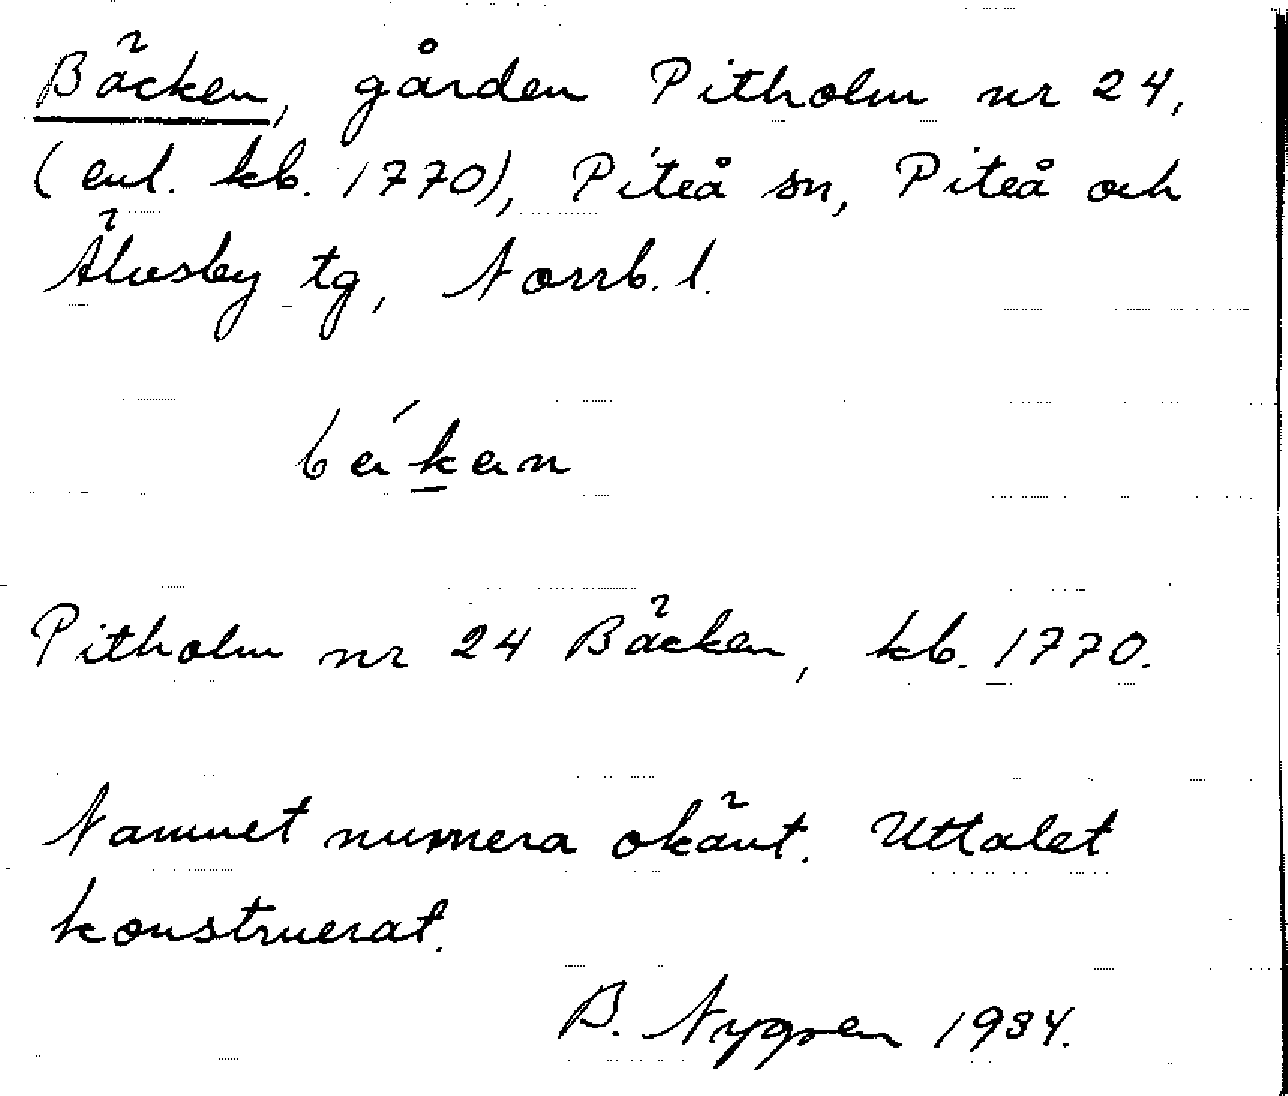 Bäcken, gården Pitholm nr 24,
(enl. kb. 1770), Piteå sn, Piteå och
Älvsby tg, Norrb. l.
Pitholm nr 24 Bäcken, kb. 1770.
Namnet numera okänt. Uttalet
konstruerat.
B. Nygren 1934.